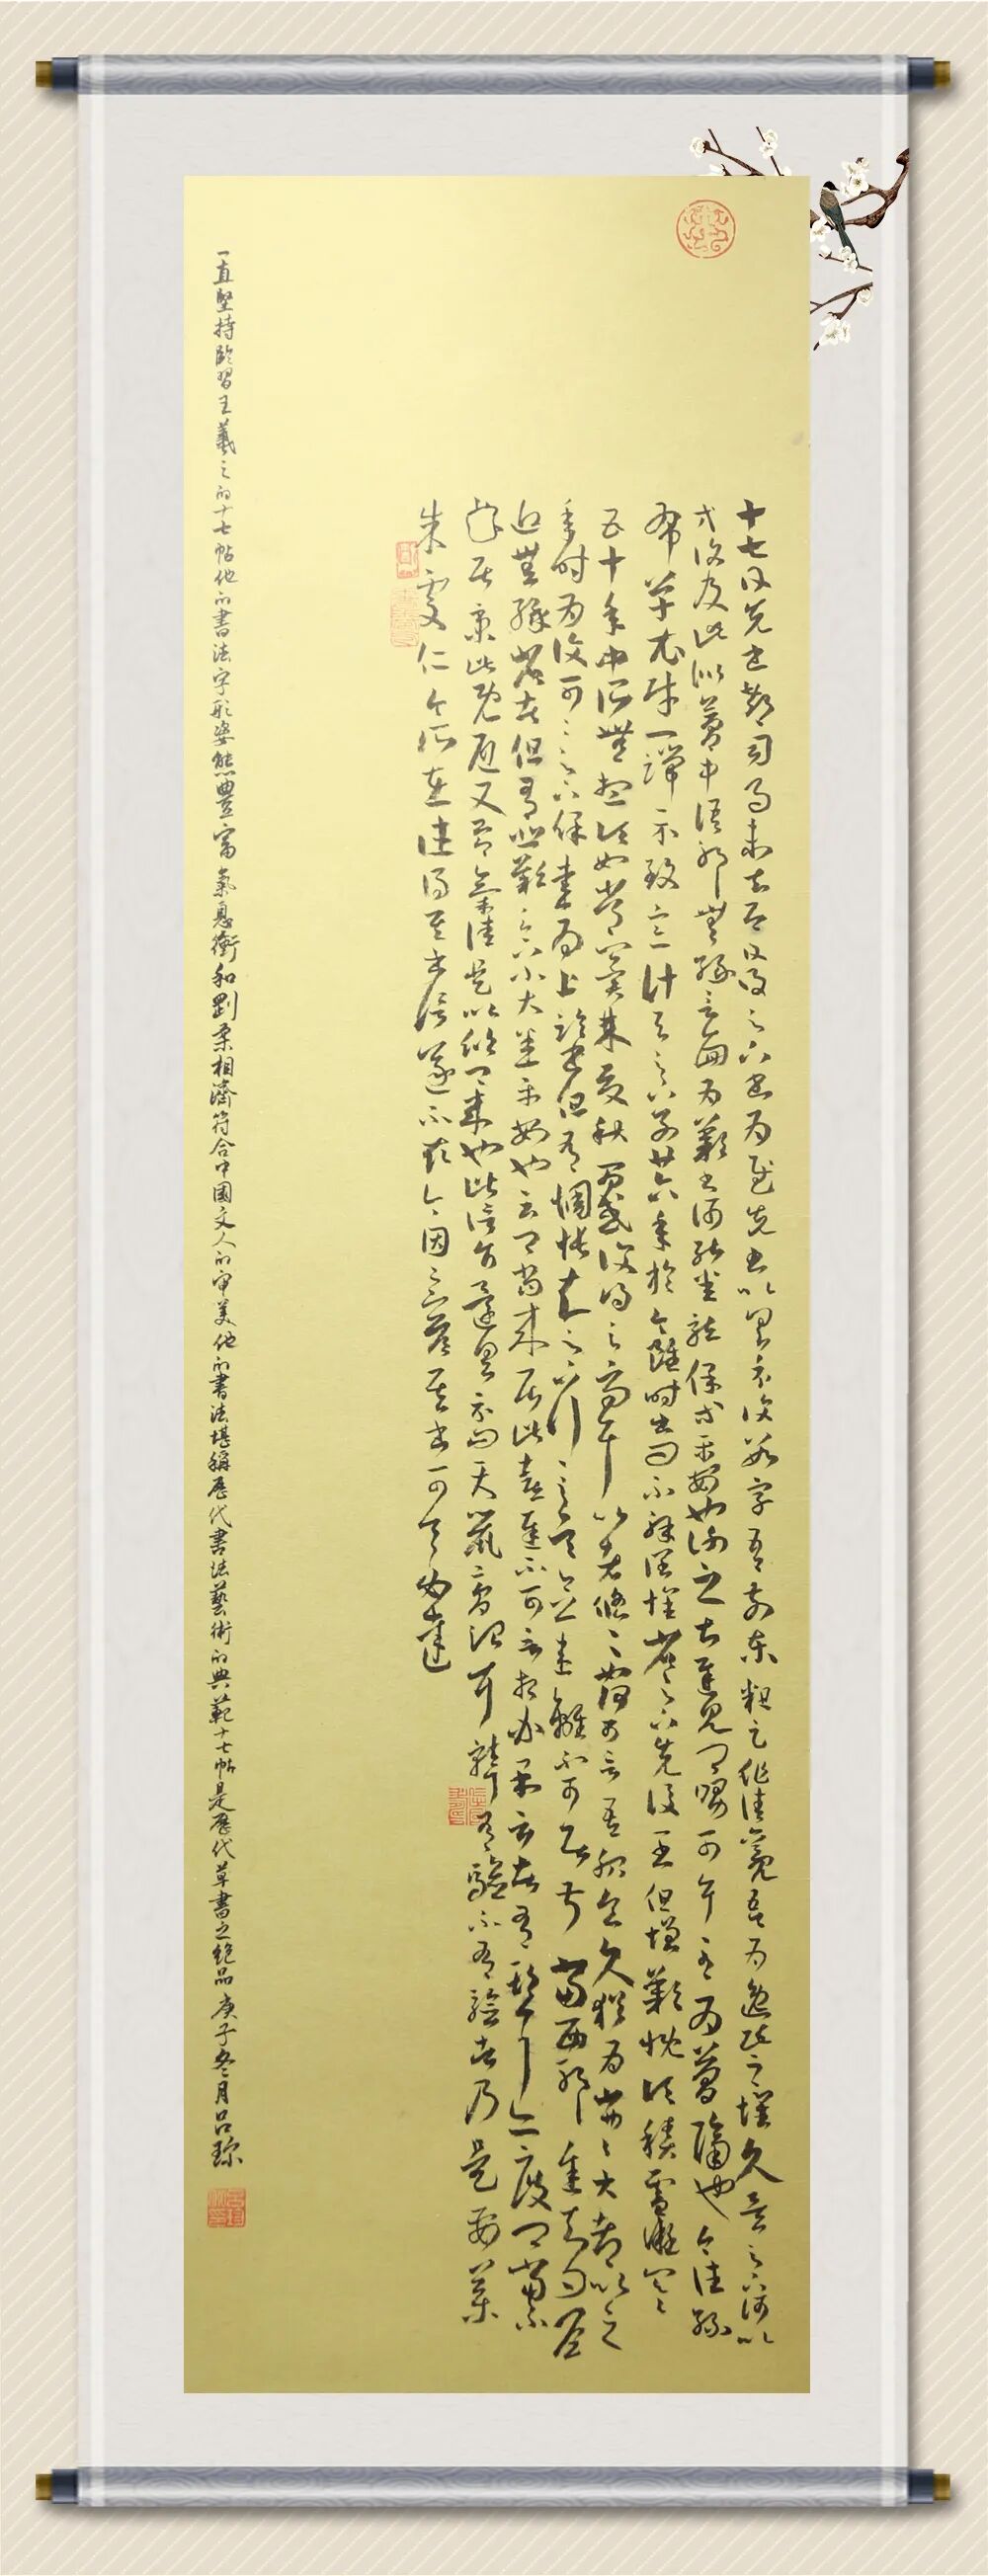 十七日先書郗司馬未去即日得足下書為慰先書以具示復數字吾前東粗足作佳觀吾為逸民之懷久矣足下何以
方復及此似夢中語耶無緣言面為歎書何能悉龍保等平安也謝之甚遲見卿舅可耳至為簡隔也今往絲
布單衣財一端示致意計與足下別廿六年於今雖時書問不解闊懷省足下先後二書但增歎慨頃積雪凝寒
五十年中所無想頃如常冀來夏秋間或復得足下問耳比者悠悠如何可言吾服食久猶為劣劣大都比之
年時為復可可足下保愛為上臨書但有惆悵知足下行至吳念違離不可居叔當西耶遲知問瞻
近無緣省苦但有悲歎足下小大悉平安也云卿當來居此喜遲不可言想必果言苦有期耳亦度卿當不
居京此既避又節氣佳是以欣卿來也此信旨還具示問天鼠膏治耳聾有驗不有驗者乃是要藥
朱處仁今所在往得其書信遂不取答今因足下答其書可令必達
一直堅持臨習王羲之的十七帖他的書法字形姿態豐富氣息衝和剛柔相濟符合中國文人的审美他的書法堪稱歷代書法藝術的典範十七帖是歷代草書之絕品庚子冬月吕琮